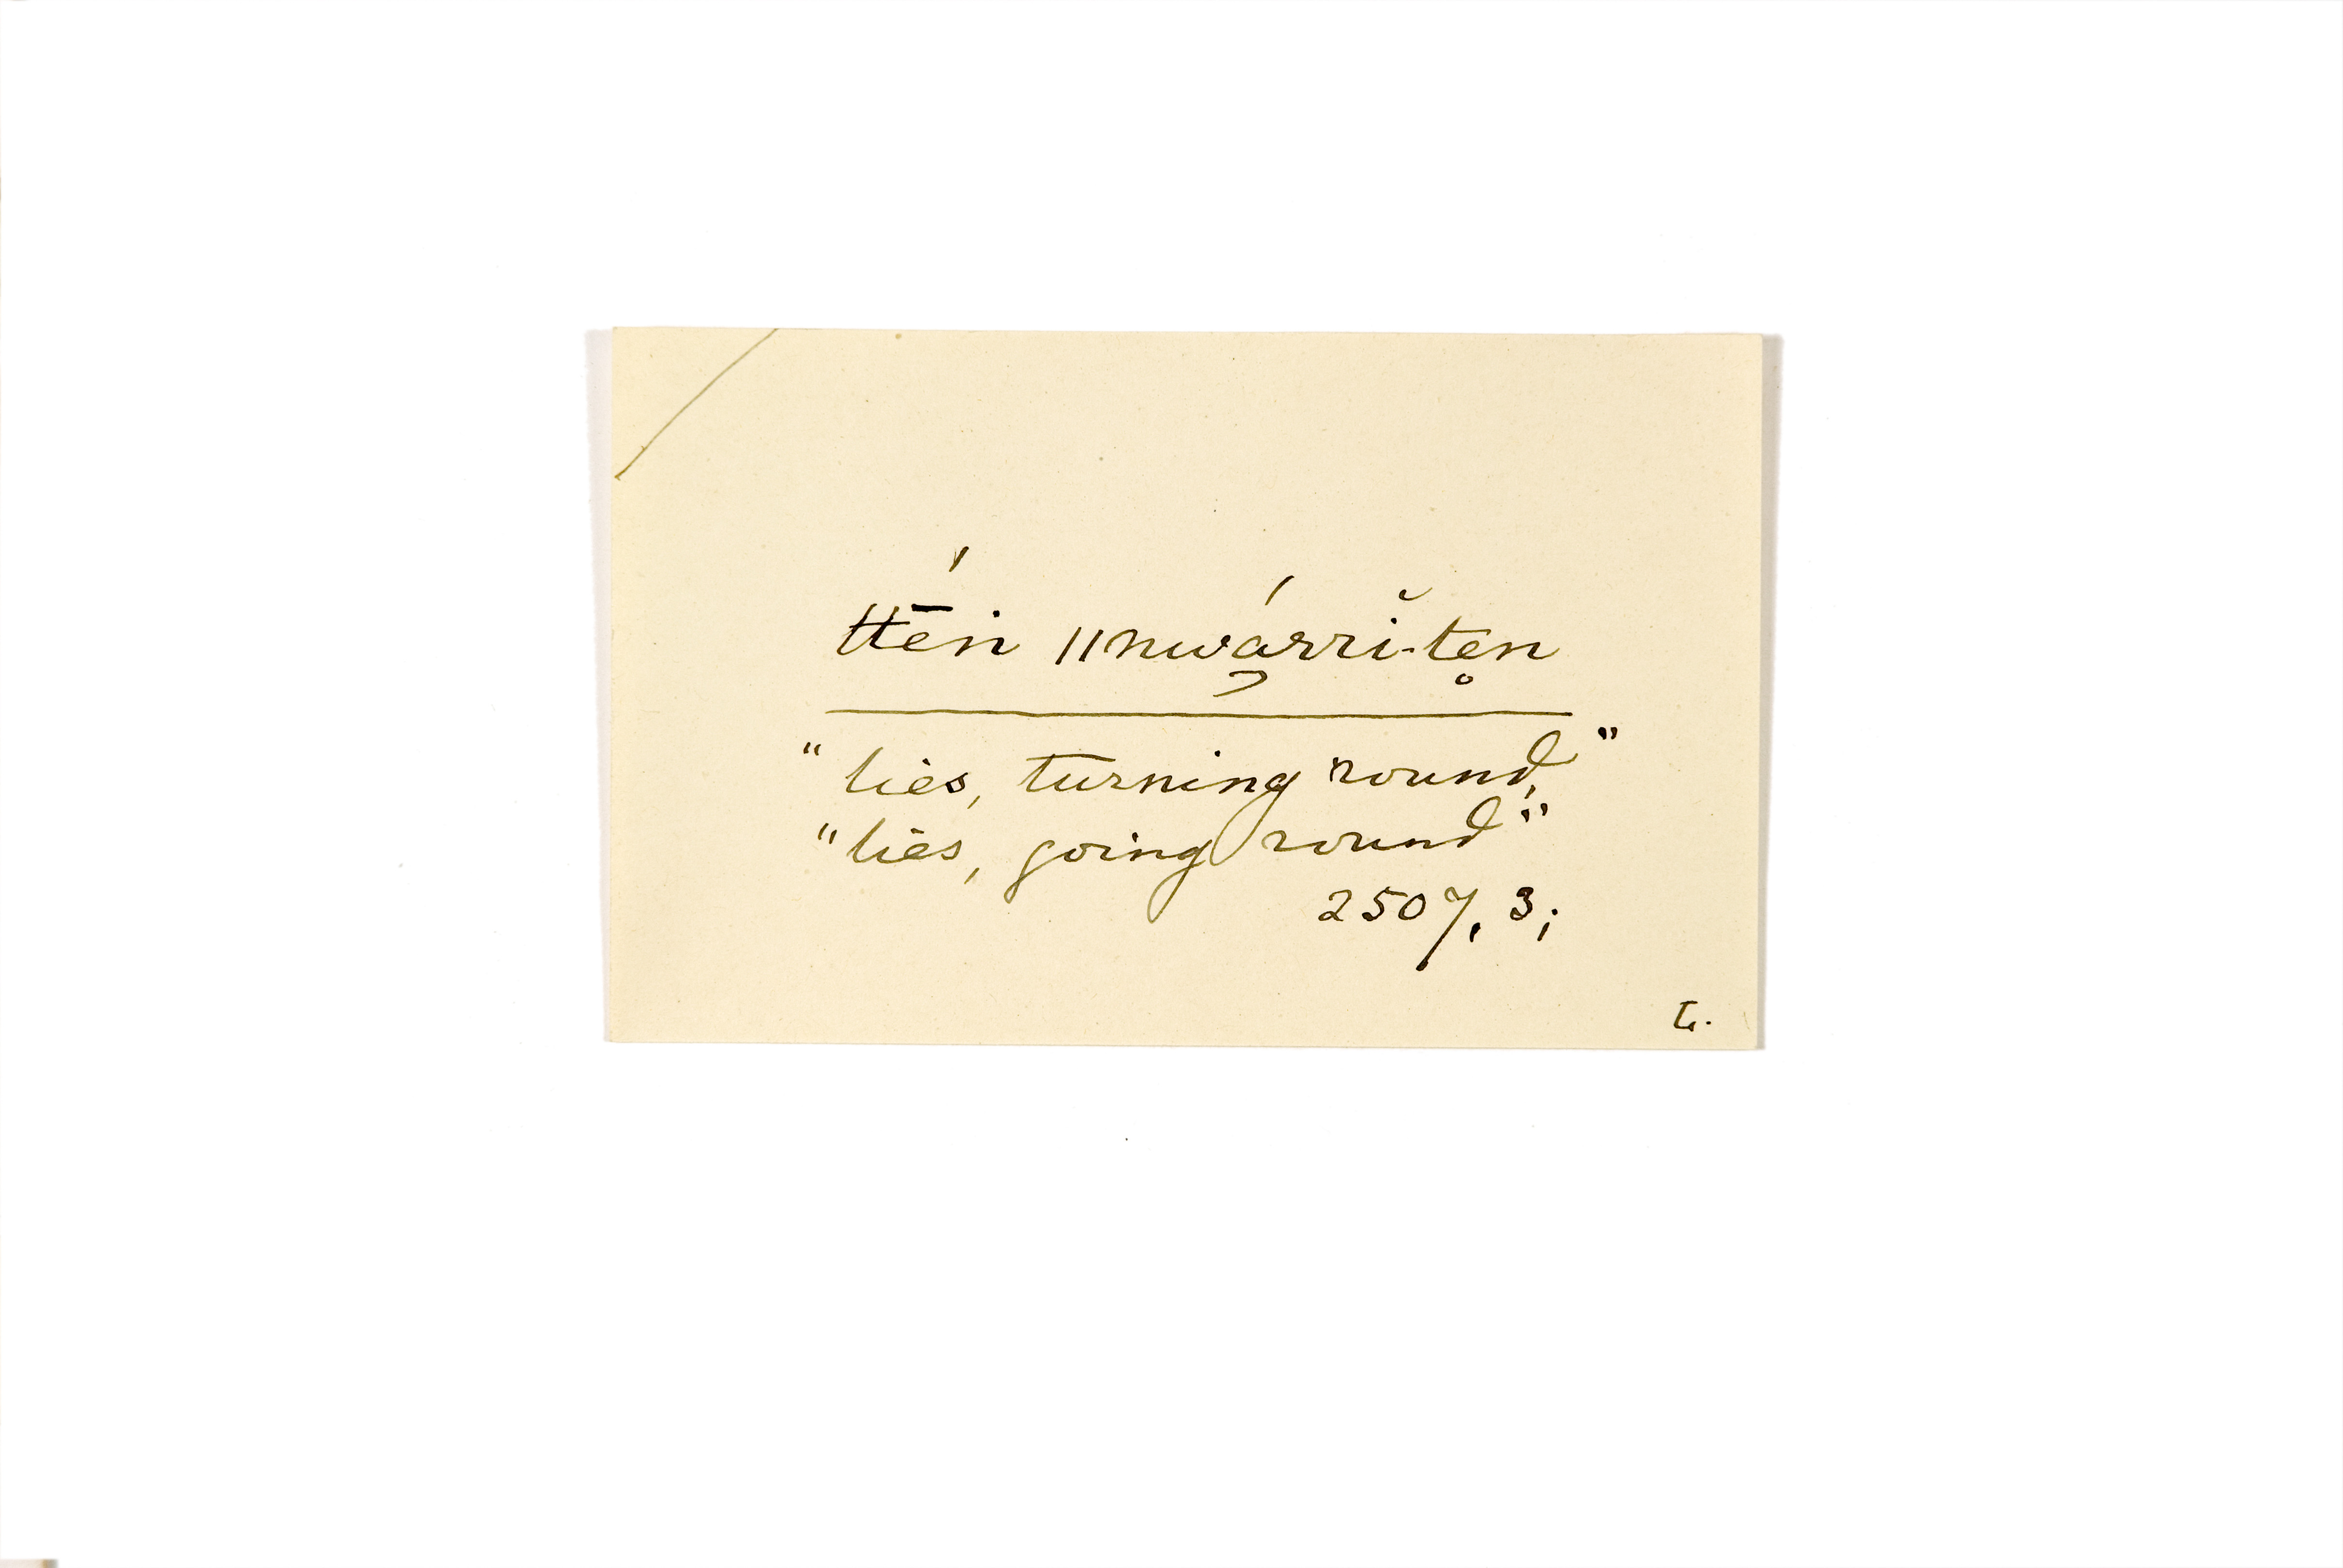 ttḗn ǁnwá̱rrĭ-te̥n
"lies, turning round,"
"lies, going round"
2507, 3;
L.